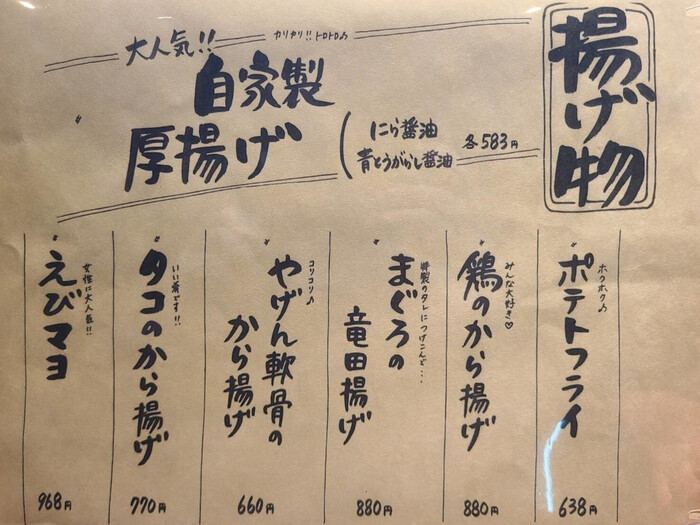 揚げ物
大人気!!
カリカリ!!トロトロ♪
自家製
厚揚げ
にら醤油
青とうがらし醤油
各583円
ホクホク♪
ポテトフライ
638円
みんな大好き♡
鶏のから揚げ
880円
特製のタレにつけこんど・・・
まぐろの
竜田揚げ
880円
コリコリ♪
やげん軟骨の
から揚げ
660円
いい肴です!!
タコのから揚げ
770円
女性に大人気!!
えびマヨ
968円